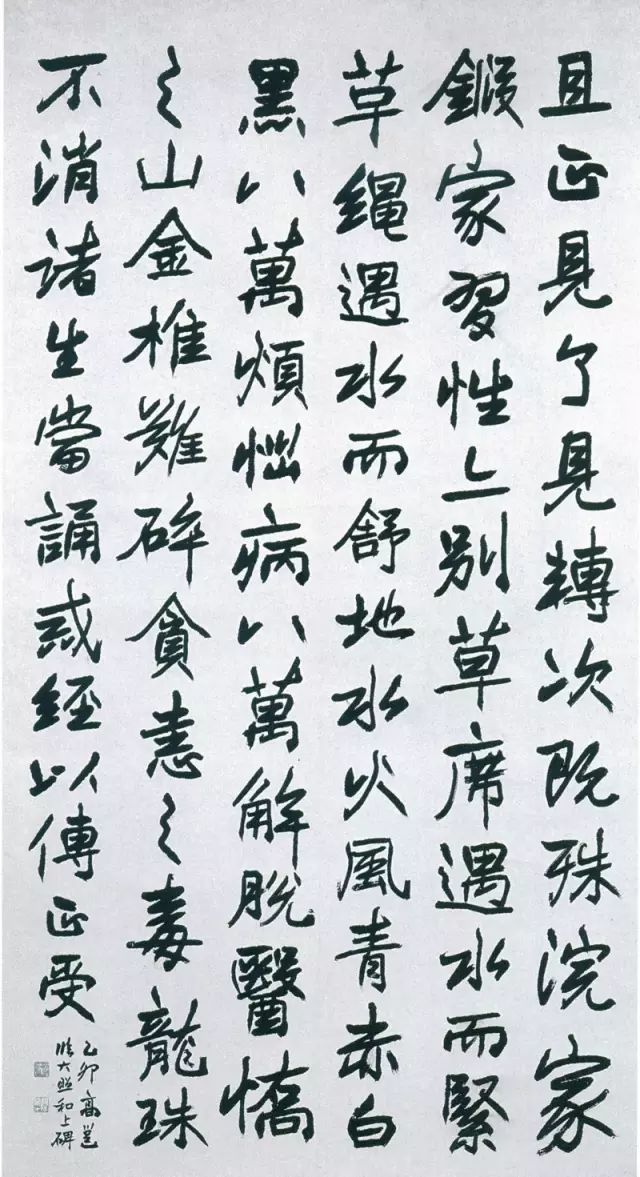 且正見了見轉次既殊浣家
鍛家習性上別草席遇水而緊
草繩遇水而舒地水火風青赤白
黑八萬煩惱病八萬解脫醫憍
之山金椎難碎貪恚之毒龍珠
不消諸生當誦戒經以傳正受
乙卯高邕
臨大照和上碑